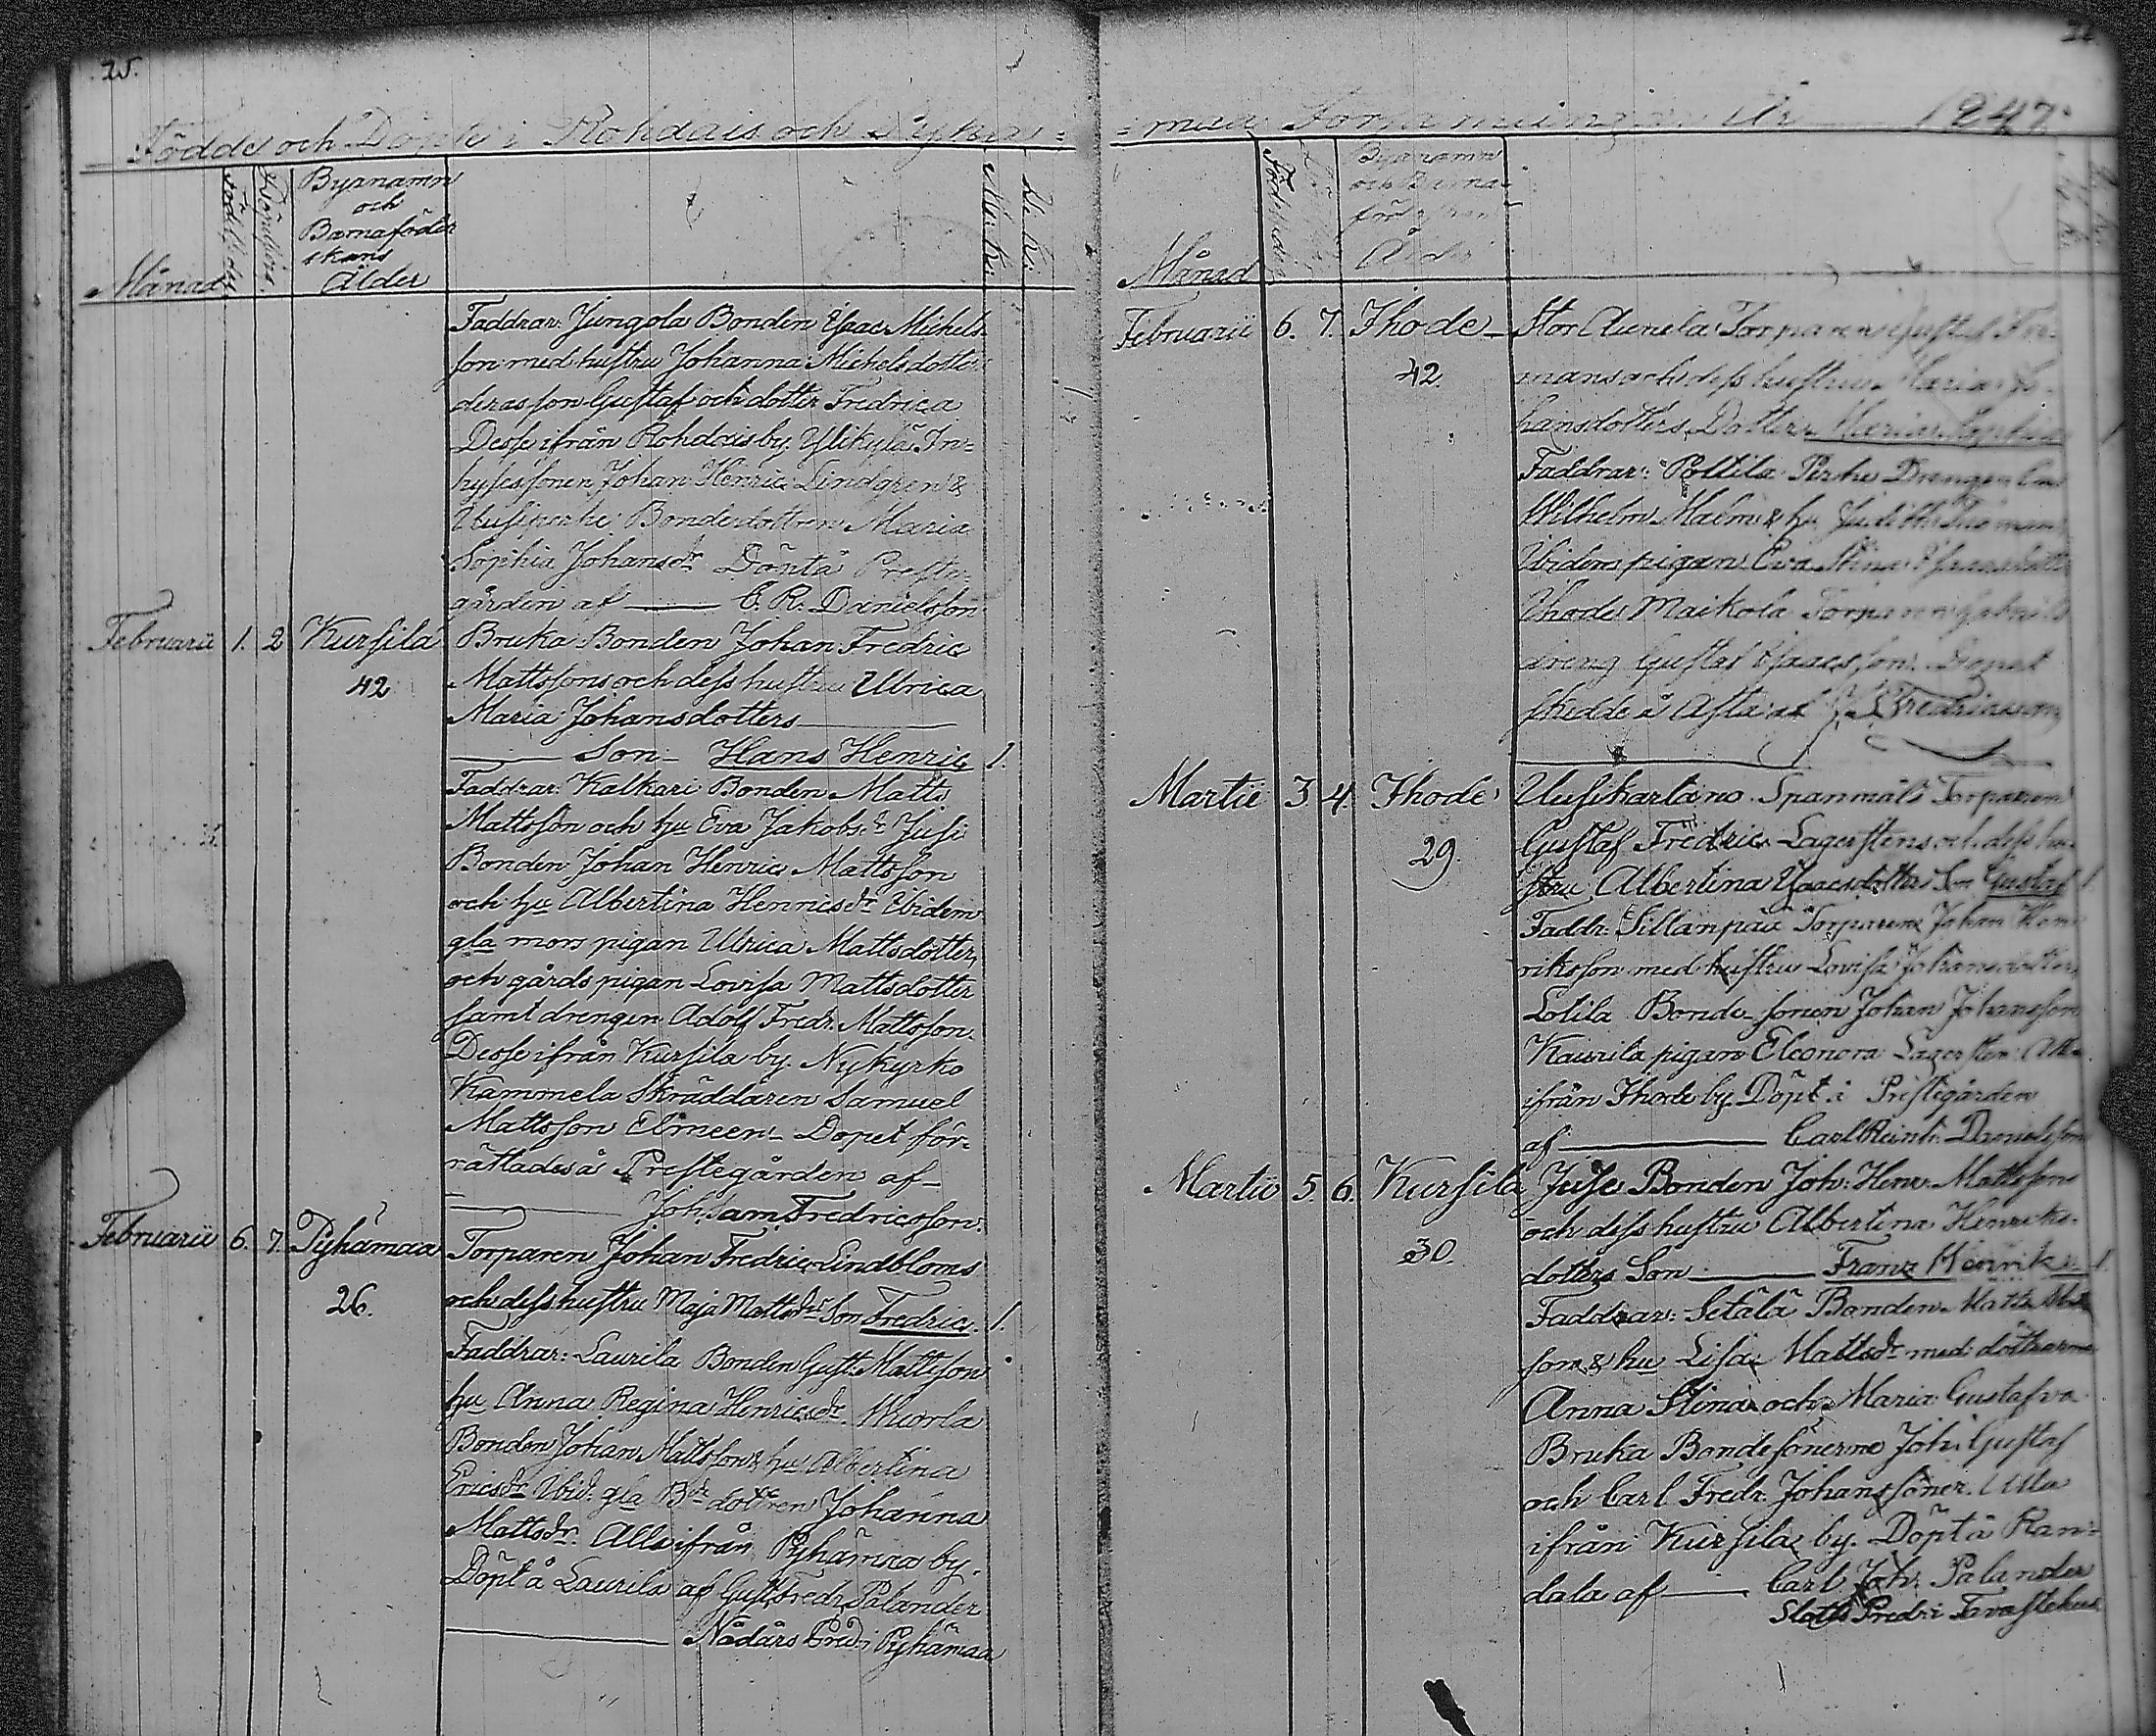 25.
Födde och Döpte i Rohdais och Pyhä=
Månad
Födelsedag
Döpelsedag
Byanamn
och
Barnaföder
skans
Ålder
Faddrar: Jungola Bonden Isaac Michels
son med hustru Johanna Michelsdotter
deras son Gustaf och dotter Fredrica
Desse ifrån Rohdaisby. Ylikylä In=
hysessonen Johan Henric Lindgren &
Uusiperhe Bondedottren Maria
Sophia Johansdr Döpt å Preste
gården af — C. R. Danielsson
Februarii 1. 2 Kursila Bruka Bonden Johan Fredric
42 Mattssons och dess hustru Ulrica
Maria Johansdotters —
— Son — Hans Henric 1.
Faddrar: Kalkari Bonden Matts
Mattsson och hu Eva Jakobsdr Jusi
Bonden Johan Henric Mattsson
och hu Albertina Henricsdr Ibidem
gla mors pigan Ulrica Mattsdotter,
och gårds pigan Lovisa Mattsdotter
samt drengen Adolf Fredr. Mattsson.
Desse ifrån Kursila by. Nykyrko
Kammela Skräddaren Samuel
Mattsson Elmeen — Dopet för=
rättades å Prestegården af —
— Joh. Sam. Fredricsson.
Februarii 6. 7. Pyhämaa Torparen Johan Fredric Lindbloms
26. och dess hustru Maja Mattsdrs Son Fredric. 1.
Faddrar: Laurila Bonden Gust. Mattsson
hu Anna Regina Henricsdr. Wuorla
Bonden Johan Mattsson & hu Albertina
Ericsdr Ibid. gla Bdr dottren Johanna
Mattsdr. Alle ifrån Pyhämaa by.
Döpt å Laurila af Gust. Fredr. Palander
— Nådårs Pred. i Pyhämaa
=maa Församlingar År 1847.
Månad
Byanamn
och Barna
föderskans
Ålder
Februarii 6. 7. Ihode — Stor Aunela Torparen Gustaf
42 mans och dess hustru Maria Jo-
hansdotters Dotter Maria Sophia 1
Faddrar: Pottila Perhe Drengen
Wilhelm Malm & hu Judith
Ibidem pigan Eva Stina Isaacsdotter
Ihode Maikola Torparen
dreng Gustaf Isaacsson. Dopet
skedde å af J. S. Fredricsson
Martii 3 4. Ihode Uusikartano Spanmåls Torparen
29. Gustaf Fredric Lagerstens och dess hu-
stru Albertina Isaacsdotters Son Gustaf 1
Faddr: Sillanpää Torparen Johan Hen
riksson med hustru Lovisa Johansdotter
Lolila Bonde sonen Johan Johansson
Kaurila pigan Eleonora Lagersten Alla
ifrån Ihode by. Döpt i Prestegården
af — Carl Reinh. Danielsson
Martii 5. 6. Kursila Juse Bonden Joh. Henr. Mattssons
30. och dess hustru Albertina Henriks-
dotters Son — Franz Henrik 1.
Faddrar: Setälä Bonden Matts
son & hu Lisa Mattsdr med döttrarne
Anna Stina och Maria Gustafva
Bruka Bondesönerne Joh. Gustaf
och Carl Fredr. Johanssöner. Alla
ifrån Kursila by. Döpt å Ran=
dala af — Carl Joh. Palander
Slotts Pred. i Tavastehus